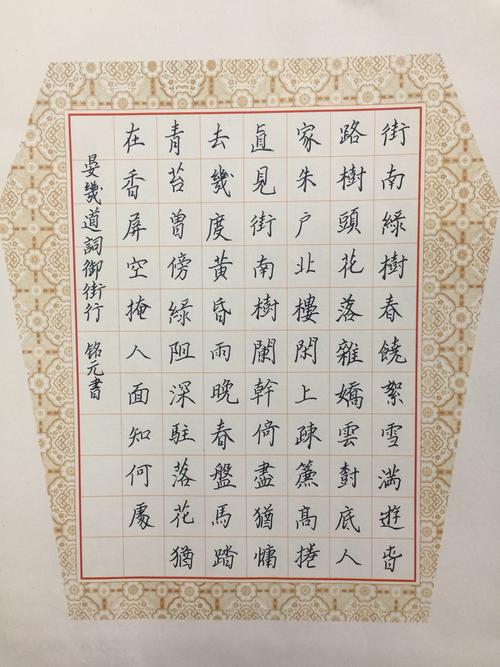 街南綠樹春饒絮雪滿遊旾
路樹頭花落雜嬌雲尌底人
家朱户北樓閑上疎簾高捲
直見街南樹闌幹倚盡猶慵
去幾度黃昏雨晚春盤馬踏
青苔曾傍緑阻深駐落花猶
在香屏空掩人面知何處
晏幾道詞御街行 銘元書